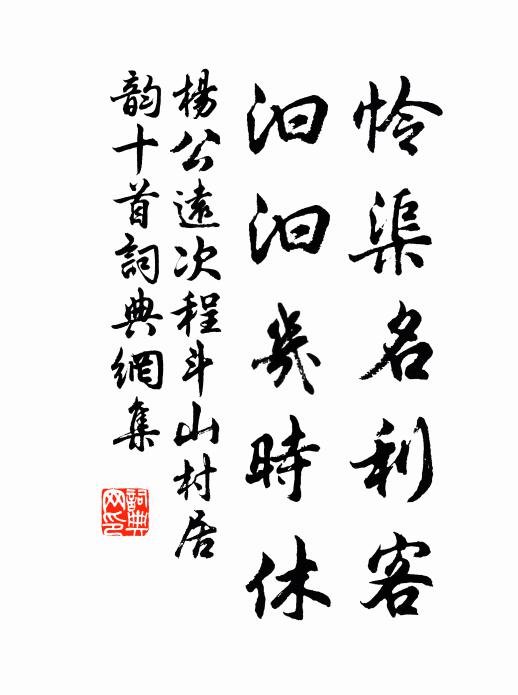 怜渠名利客
汩汩幾時休
楊公遠次程斗山村居
韵十首詞典網集
詞典網印